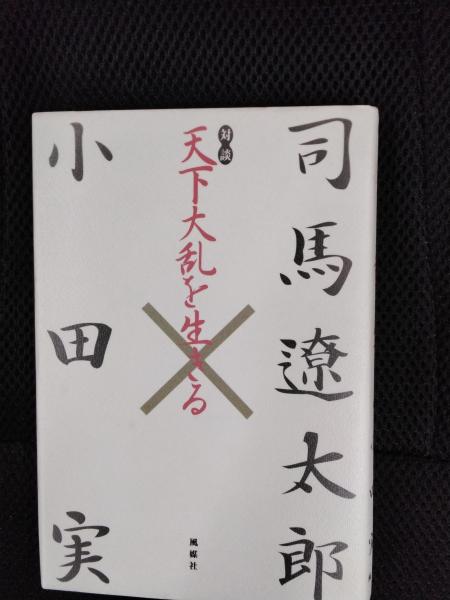 司馬遼太郎
対談
天下大乱を生きる
小田実
風媒社